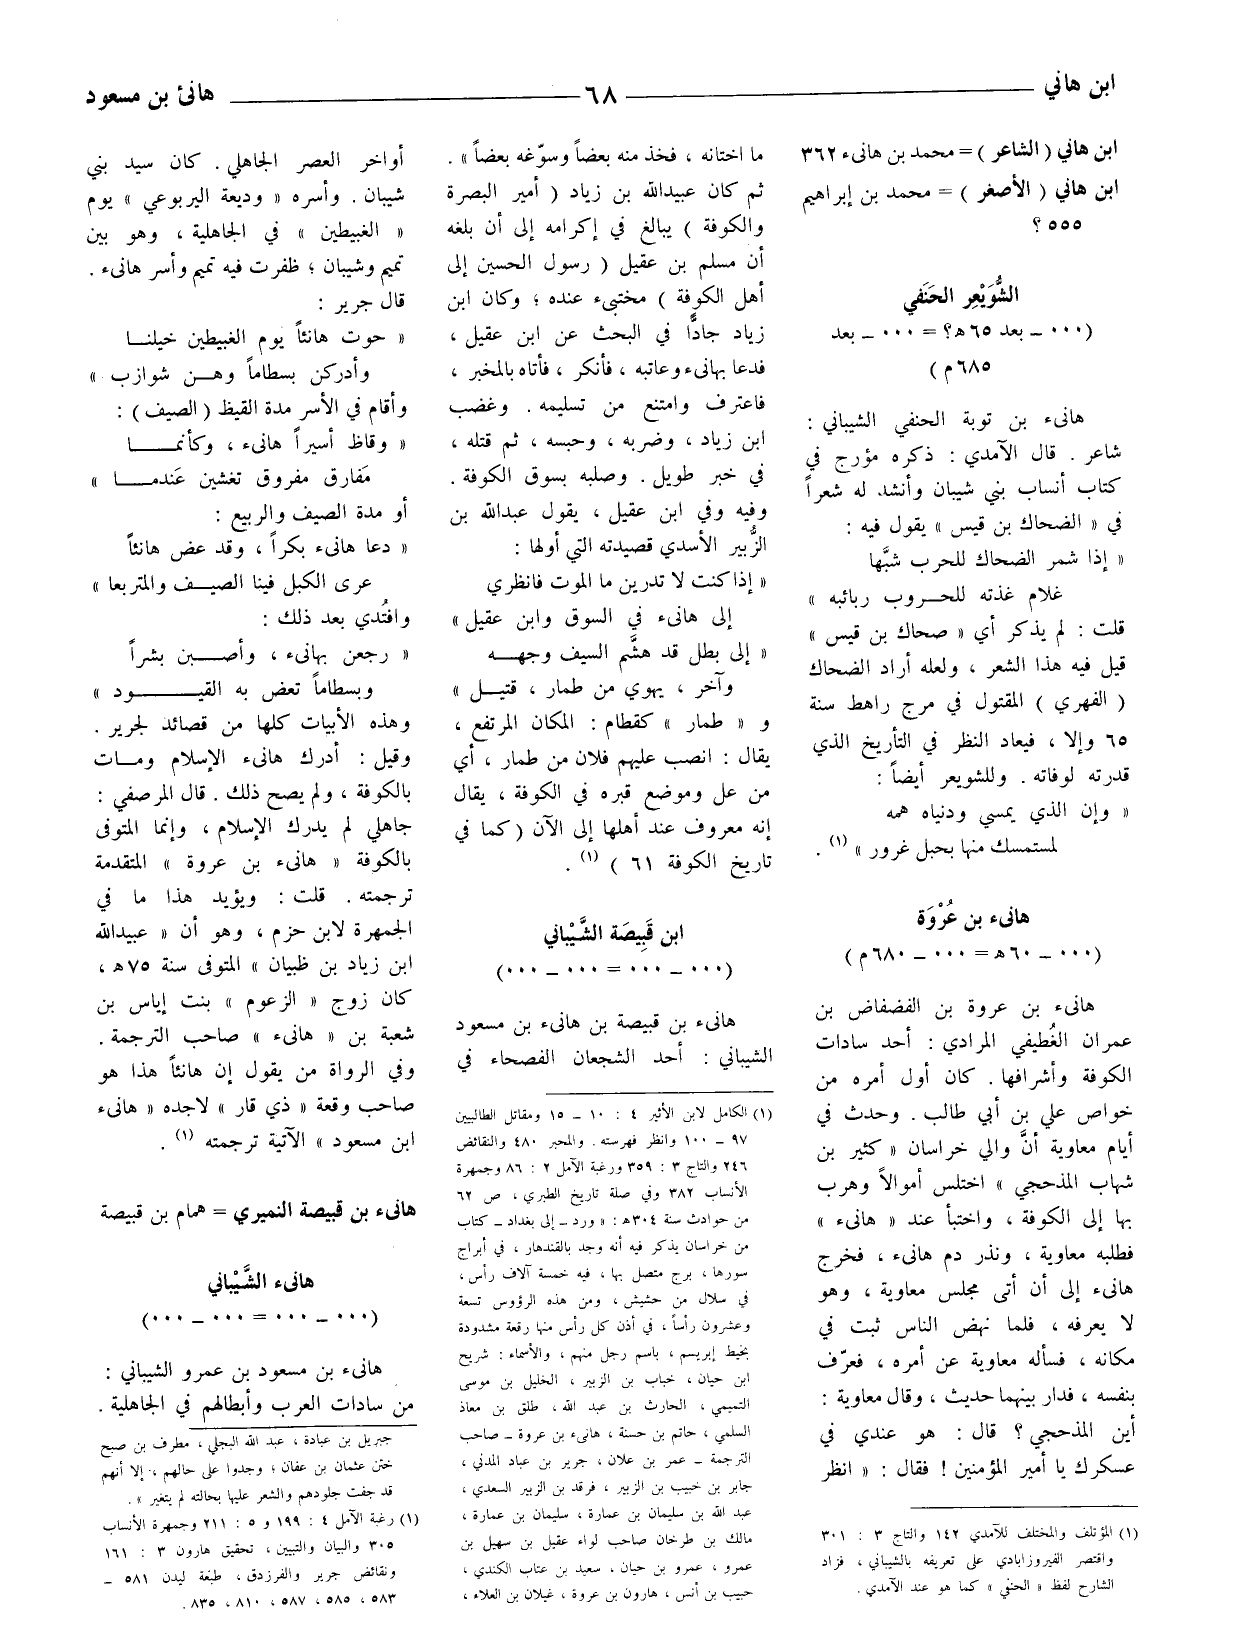 ابن هاني
٦٨
هانئ بن مسعود
ابن هاني ( الشاعر ) = محمد بن هانىء ٣٦٢
ابن هاني ( الأصغر ) = محمد بن إبراهيم
٥٥٥ ؟
الشُّوَيْعِر الحَنَفي
( ٠٠٠ ــ بعد ٦٥ هـ؟ = ٠٠٠ ــ بعد
٦٨٥ م )
هانىء بن توبة الحنفي الشيباني :
شاعر . قال الآمدي : ذكره مؤرج في
كتاب أنساب بني شيبان وأنشد له شعراً
في « الضحاك بن قيس » يقول فيه :
« إذا شمر الضحاك للحرب شبَّها
غلام غذته للحـــروب ربائبه »
قلت : لم يذكر أي « صحاك بن قيس »
قيل فيه هذا الشعر ، ولعله أراد الضحاك
( الفهري ) المقتول في مرج راهط سنة
٦٥ وإلا ، فيعاد النظر في التأريخ الذي
قدرته لوفاته . وللشويعر أيضاً :
« وإن الذي يمسي ودنياه همه
لمستمسك منها بحبل غرور » (١) .
هانىء بن عُرْوَة
( ٠٠٠ ــ ٦٠ هـ = ٠٠٠ ــ ٦٨٠ م )
هانىء بن عروة بن الفضفاض بن
عمران الغُطيفي المرادي : أحد سادات
الكوفة وأشرافها . كان أول أمره من
خواص علي بن أبي طالب . وحدث في
أيام معاوية أنَّ والي خراسان « كثير بن
شهاب المذحجي » اختلس أموالاً وهرب
بها إلى الكوفة ، واختبأ عند « هانىء »
فطلبه معاوية ، ونذر دم هانىء ، فخرج
هانىء إلى أن أتى مجلس معاوية ، وهو
لا يعرفه ، فلما نهض الناس ثبت في
مكانه ، فسأله معاوية عن أمره ، فعرّف
بنفسه ، فدار بينهما حديث ، وقال معاوية :
أين المذحجي ؟ قال : هو عندي في
عسكرك يا أمير المؤمنين ! فقال : « انظر
(١) المؤتلف والمختلف للآمدي ١٤٢ والتاج ٣ : ٣٠١
واقتصر الفيروزابادي على تعريفه بالشيباني ، فزاد
الشارح لفظ « الحنفي » كما هو عند الآمدي .
ما اختانه ، فخذ منه بعضاً وسوّغه بعضاً » .
ثم كان عبيدالله بن زياد ( أمير البصرة
والكوفة ) يبالغ في إكرامه إلى أن بلغه
أن مسلم بن عقيل ( رسول الحسين إلى
أهل الكوفة ) مختبىء عنده ؛ وكان ابن
زياد جادًّا في البحث عن ابن عقيل ،
فدعا بهانىء وعاتبه ، فأنكر ، فأتاه بالمخبر ،
فاعترف وامتنع من تسليمه . وغضب
ابن زياد ، وضربه ، وحبسه ، ثم قتله ،
في خبر طويل . وصلبه بسوق الكوفة .
وفيه وفي ابن عقيل ، يقول عبدالله بن
الزُّبير الأسدي قصيدته التي أولها :
« إذا كنت لا تدرين ما الموت فانظري
إلى هانىء في السوق وابن عقيل »
« إلى بطل قد هشَّم السيف وجهــه
وآخر ، يهوي من طمار ، قتيــل »
و « طمار » كقطام : المكان المرتفع ،
يقال : انصب عليهم فلان من طمار ، أي
من عل وموضع قبره في الكوفة ، يقال
إنه معروف عند أهلها إلى الآن ( كما في
تاريخ الكوفة ٦١ ) (١) .
ابن قَبِيصَة الشَّيْباني
( ٠٠٠ ــ ٠٠٠ = ٠٠٠ ــ ٠٠٠ )
هانىء بن قبيصة بن هانىء بن مسعود
الشيباني : أحد الشجعان الفصحاء في
(١) الكامل لابن الأثير ٤ : ١٠ ــ ١٥ ومقاتل الطالبيين
٩٧ ــ ١٠٠ وانظر فهرسته . والمحبر ٤٨٠ والنقائض
٢٤٦ والتاج ٣ : ٣٥٩ ورغبة الآمل ٢ : ٨٦ وجمهرة
الأنساب ٣٨٢ وفي صلة تاريخ الطبري ، ص ٦٢
من حوادث سنة ٣٠٤ هـ : « ورد ــ إلى بغداد ــ كتاب
من خراسان يذكر فيه أنه وجد بالقندهار ، في أبراج
سورها ، برج متصل بها ، فيه خمسة آلاف رأس ،
في سلال من حشيش ، ومن هذه الرؤوس تسعة
وعشرون رأساً ، في أذن كل رأس منها رقعة مشدودة
بخيط إبريسم ، باسم رجل منهم ، والأسماء : شريح
ابن حيان ، خباب بن الزبير ، الخليل بن موسى
التميمي ، الحارث بن عبد الله ، طلق بن معاذ
السلمي ، حاتم بن حسنة ، هانىء بن عروة ــ صاحب
الترجمة ــ عمر بن علان ، جرير بن عباد المدني ،
جابر بن خبيب بن الزبير ، فرقد بن الزبير السعدي ،
عبد الله بن سليمان بن عمارة ، سليمان بن عمارة ،
مالك بن طرخان صاحب لواء عقيل بن سهيل بن
عمرو ، عمرو بن حيان ، سعيد بن عتاب الكندي ،
حبيب بن أنس ، هارون بن عروة ، غيلان بن العلاء ،
أواخر العصر الجاهلي . كان سيد بني
شيبان . وأسره « وديعة اليربوعي » يوم
« الغبيطين » في الجاهلية ، وهو بين
تميم وشيبان ؛ ظفرت فيه تميم وأسر هانىء .
قال جرير :
« حوت هانئاً يوم الغبيطين خيلنــا
وأدركن بسطاماً وهــن شوازب »
وأقام في الأسر مدة القيظ ( الصيف ) :
« وقاظ أسيراً هانىء ، وكأنمــــا
مَفارق مفروق تغشين عَندمـــا »
أو مدة الصيف والربيع :
« دعا هانىء بكراً ، وقد عض هانئاً
عرى الكبل فينا الصيــف والمتربعا »
وافتُدي بعد ذلك :
« رجعن بهانىء ، وأصـــبن بشراً
وبسطاماً تعض به القيـــــود »
وهذه الأبيات كلها من قصائد لجرير .
وقيل : أدرك هانىء الإسلام ومــات
بالكوفة ، ولم يصح ذلك . قال المرصفي :
جاهلي لم يدرك الإسلام ، وإنما المتوفى
بالكوفة « هانىء بن عروة » المتقدمة
ترجمته . قلت : ويؤيد هذا ما في
الجمهرة لابن حزم ، وهو أن « عبيدالله
ابن زياد بن ظبيان » المتوفى سنة ٧٥ هـ ،
كان زوج « الزعوم » بنت إياس بن
شعبة بن « هانىء » صاحب الترجمة .
وفي الرواة من يقول إن هانئاً هذا هو
صاحب وقعة « ذي قار » لاجده « هانىء
ابن مسعود » الآتية ترجمته (١) .
هانىء بن قبيصة النميري = همام بن قبيصة
هانىء الشَّيْباني
( ٠٠٠ ــ ٠٠٠ = ٠٠٠ ــ ٠٠٠ )
هانىء بن مسعود بن عمرو الشيباني :
من سادات العرب وأبطالهم في الجاهلية .
جبريل بن عبادة ، عبد الله البجلي ، مطرف بن صبح
ختن عثمان بن عفان ؛ وجدوا على حالهم ، إلا أنهم
قد جفت جلودهم والشعر عليها بحالته لم يتغير » .
(١) رغبة الآمل ٤ : ١٩٩ و ٥ : ٢١١ وجمهرة الأنساب
٣٠٥ والبيان والتبيين ، تحقيق هارون ٣ : ١٦١
ونقائض جرير والفرزدق ، طبعة ليدن ٥٨١ ــ
٥٨٣ ، ٥٨٥ ، ٥٨٧ ، ٨١٠ ، ٨٣٥ .